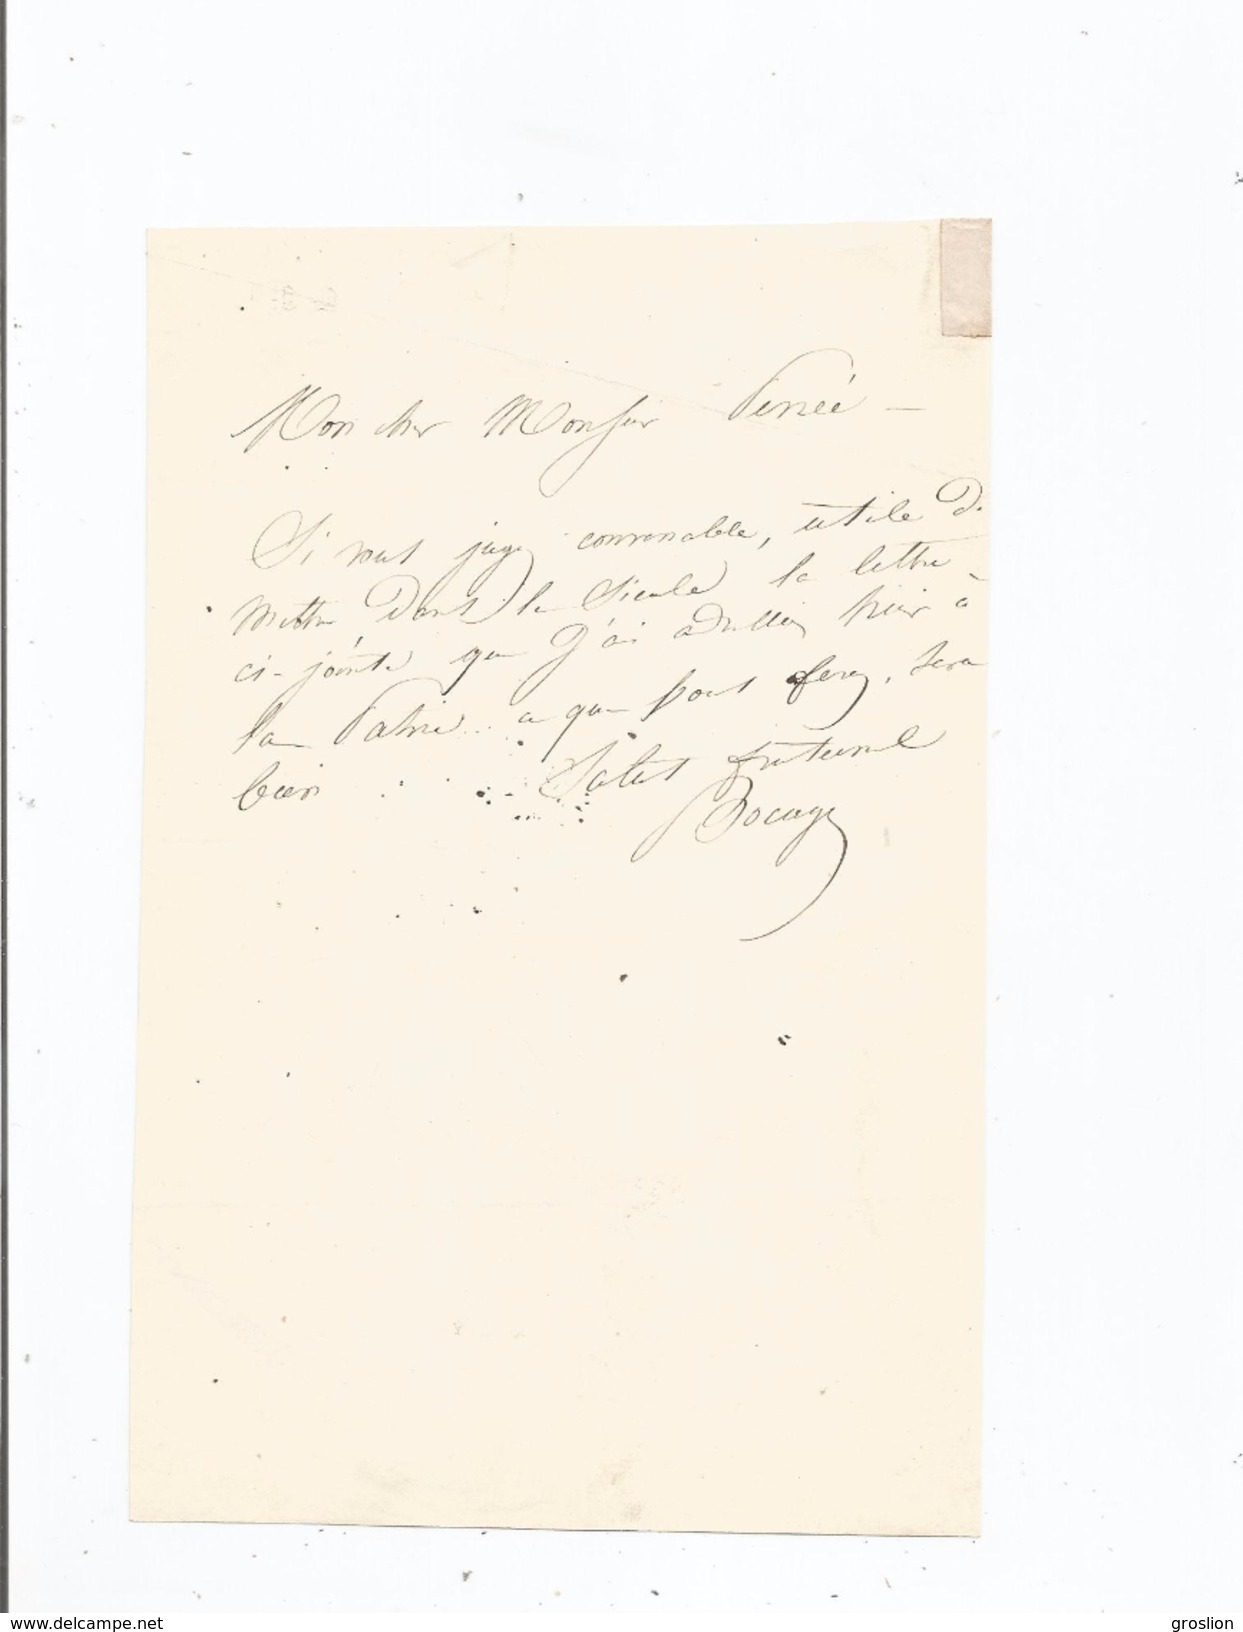 Mon cher Monsieur Perrée —
Si vous jugez convenable, utile de
mettre dans le Siècle la lettre
ci-jointe que j'ai adressée hier à
la Patrie ce que vous ferez, sera
bien Salut fraternel
Bocage
www.delcampe.net
groslion